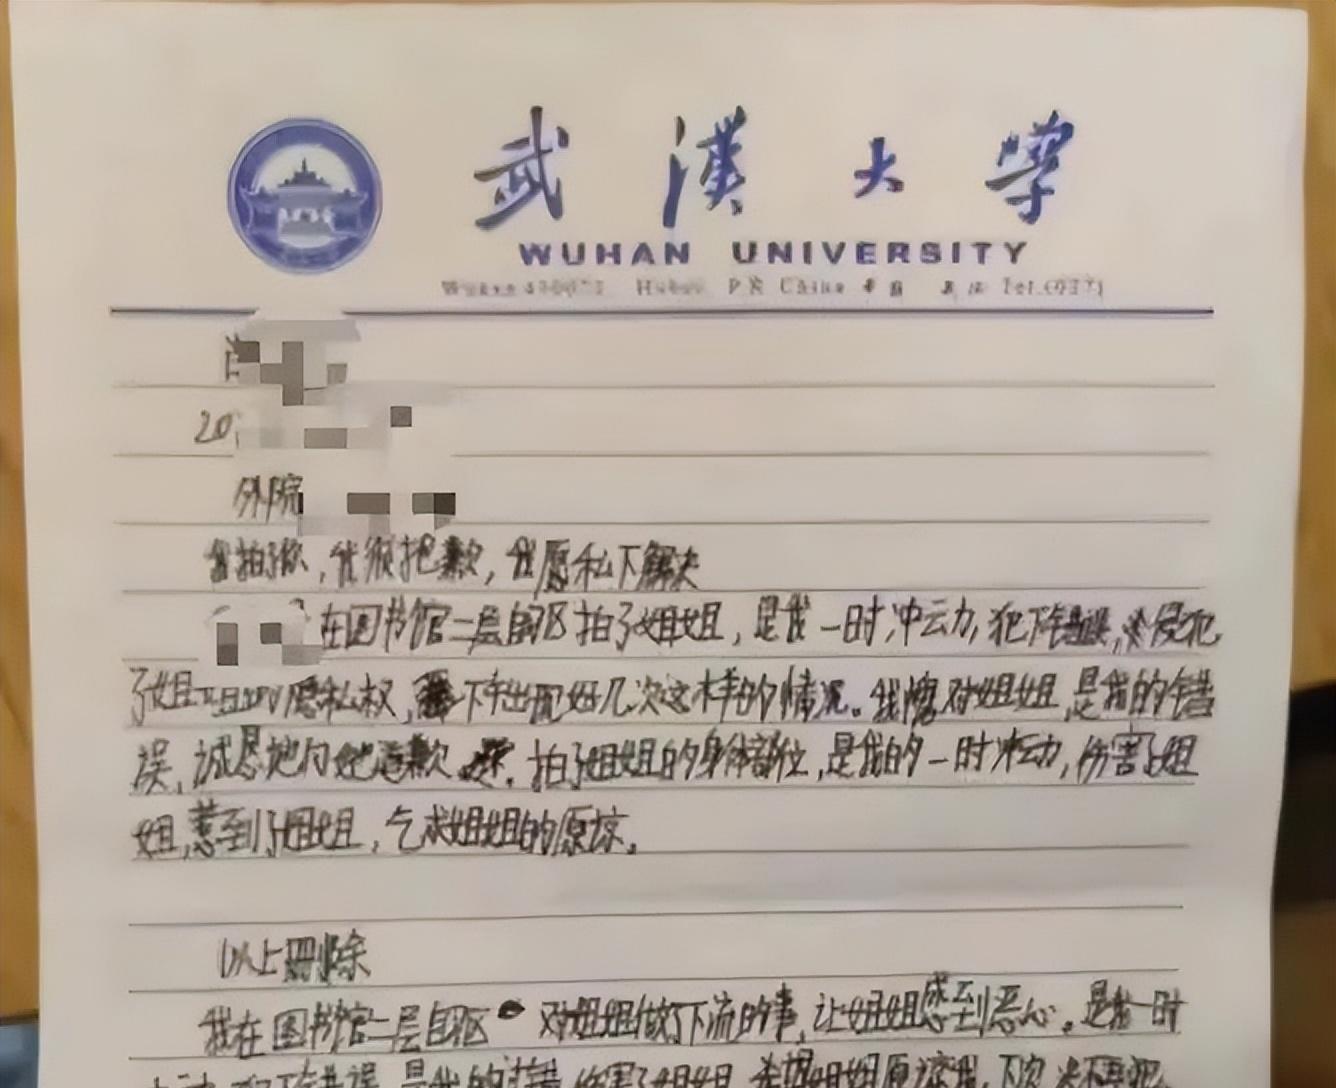 武漢大學
WUHAN UNIVERSITY
Wuhan 430072 Hubei P.R China Tel.(027)
20
外院
我拍了你，我很抱歉，我愿私下解决
在图书馆二层自习区拍了姐姐，是我一时冲动，犯下错误，侵犯
了姐姐的隐私权，下午出现好几次这样的情况。我愧对姐姐，是我的错
误，诚恳地向她道歉。拍了姐姐的身体部位，是我的一时冲动，伤害了姐
姐，惹到了姐姐，乞求姐姐的原谅。
以上删除
我在图书馆二层自习区对姐姐做了下流的事，让姐姐感到恶心。是我一时
是我的过错，伤害了姐姐，希望姐姐原谅我，下次决不再犯